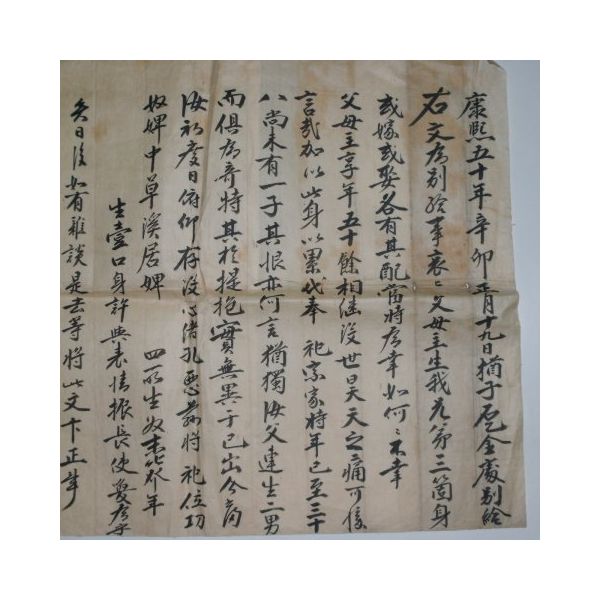 康熙五十年辛卯正月十九日猶子 全處別給
右文爲別給事哀哀父母主生我 三箇身
或嫁或娶各有其配 將 幸如何 不幸
父母主享年五十餘相繼沒世昊天之痛可 
言哉加以此身以累代奉 祀宗家將年已至三十
八尙未有一子其恨亦何言猶獨汝父連生二男
而俱爲奇特其於提抱實無異于己出今 
汝 度日俯仰存沒心緖孔悪玆將 祀位 
奴婢中草溪居婢 四所生奴 年
生壹口身許與表情振長使爱 
矣日後如有雜談是去等將此文卞正事